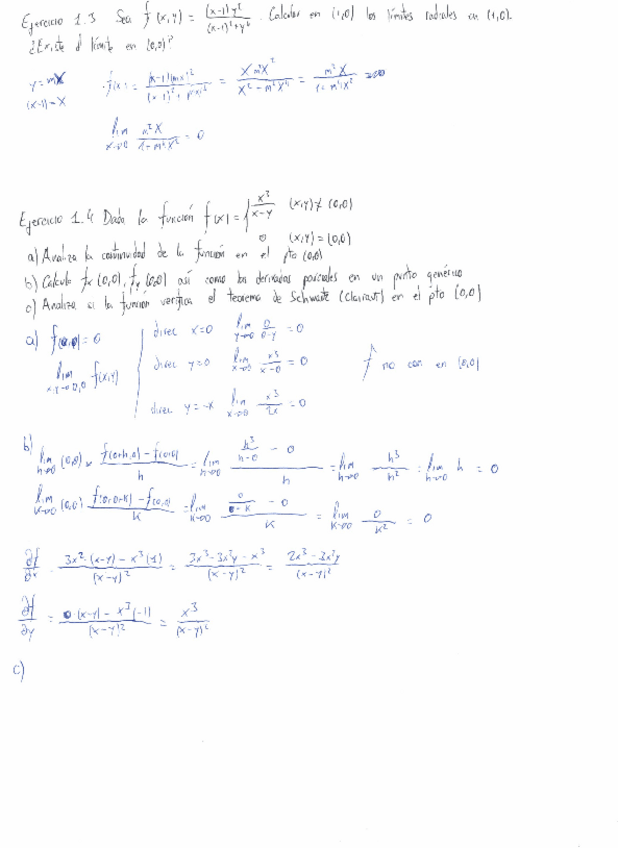 Ejercicio 1.3 Sea f(x,y) = (x-1)y² / (x-1)²+y⁴ . Calcular en (1,0) los límites radiales en (1,0).
¿Existe el límite en (0,0)?
y = mX
(x-1) = X
f(x) = (x-1)(mx)² / (x-1)² + = X m²X² / X² - m⁴X⁴ = m²X / 1 + m⁴X²
lim x→0 m²X / 1+m⁴X² = 0
Ejercicio 1.4 Dada la función f(x) = { x³ / x-y (x,y) ≠ (0,0)
0 (x,y) = (0,0)
a) Analiza la continuidad de la función en el pto (0,0)
b) Calcula fx (0,0), fy (0,0) así como las derivadas parciales en un punto genérico
c) Analiza si la función verifica el teorema de Schwartz (Clairaut) en el pto (0,0)
a) f(0,0) = 0
lim x,y→0,0 f(x,y)
direc x=0 lim y→0 0 / 0-y = 0
direc y=0 lim x→0 x³ / x-0 = 0
direc y=-x lim x→0 x³ / 2x = 0
f no con en (0,0)
b) lim h→0 (0,0) f(0+h,0) - f(0,0) / h = lim h→0 h³/h-0 - 0 / h = lim h→0 h³ / h² = lim h→0 h = 0
lim k→0 (0,0) f(0,0+k) - f(0,0) / k = lim k→0 0/0-k - 0 / k = lim k→0 0 / k² = 0
∂f/∂x 3x²·(x-y) - x³(1) / (x-y)² = 3x³ - 3x²y - x³ / (x-y)² = 2x³ - 3x²y / (x-y)²
∂f/∂y = 0·(x-y) - x³(-1) / (x-y)² = x³ / (x-y)²
c)